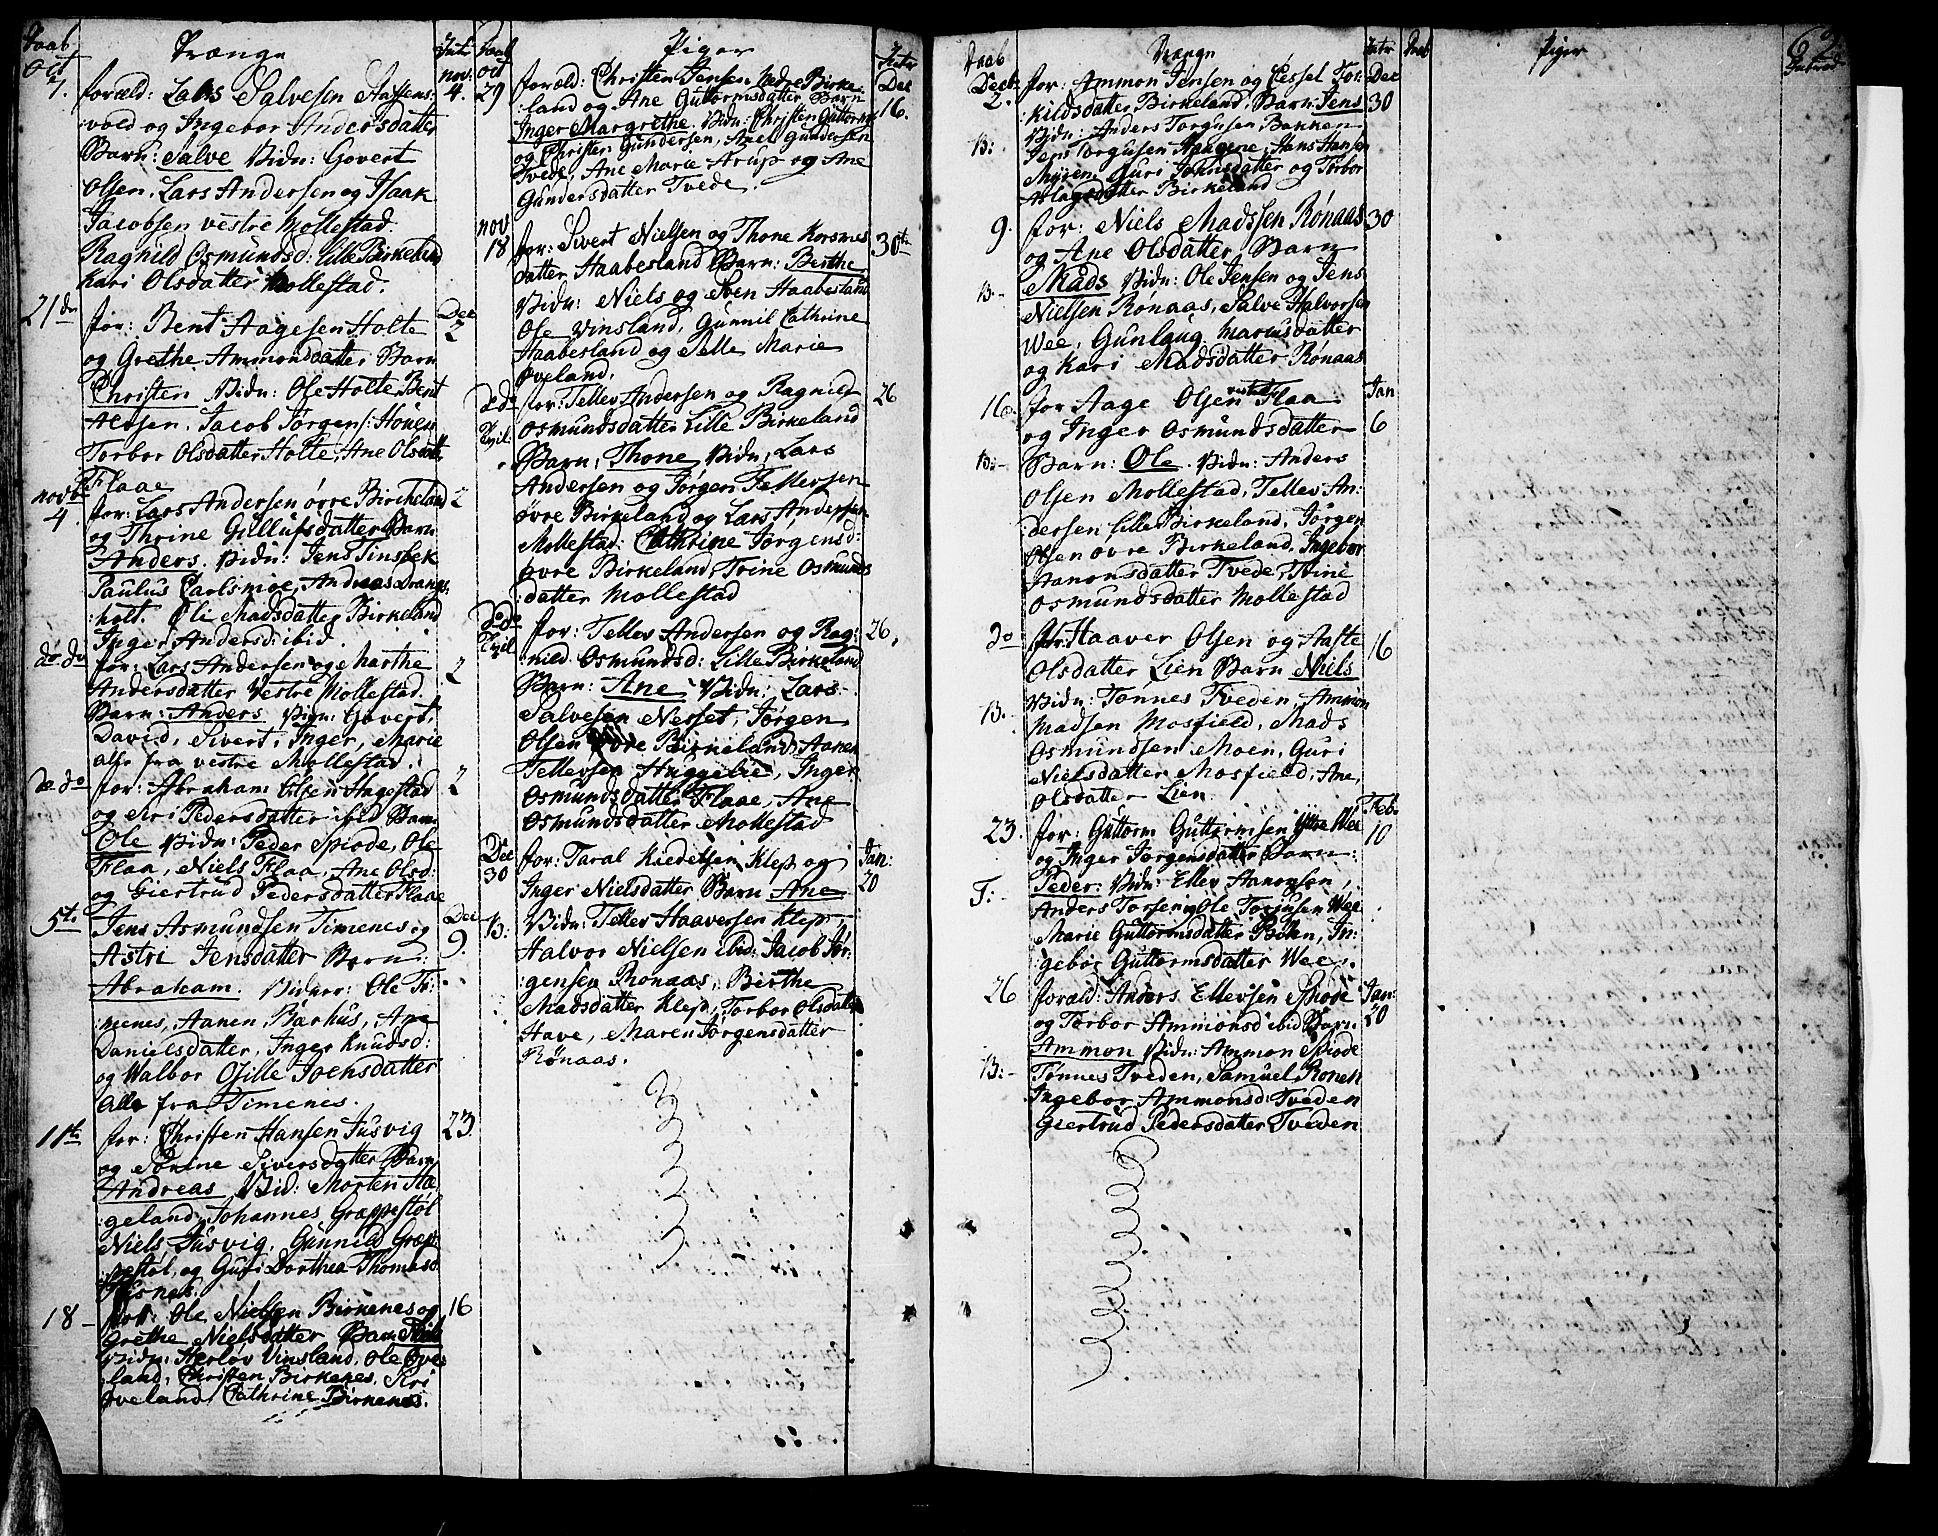 Daab
Drænge
Intr
Oct
7.
foræld: Lars Salvesen Aassens:
:vold og Ingebor Andersdatter
nov.
4.
Barn: Salve Vidn: Govert
Olsen, Lars Andersen og Isaak
Jacobsen vestre Mollestad.
Ragnild Osmundsd: Lille Birkeland
Kari Olsdatter Mollestad.
21de
for: Bent Aagesen Holte
Dec
2
og Grethe Ammondsdatter Barn
Christen Vidn: Ole Holte, Bent
Jacob Jørgens: Hönen
Torbor Olsdatter Holte, Ane Olsdatter
Flaae
novb
4.
for: Lars Andersen övre Birckeland
2
og Thrine Gullufsdatter Barn
Anders. Vidn: Jens Tinsbek
Paulus Carlsmöe, Andreas Drangs:
:holt. Oli Madsdatter Birkeland
Inger Andersd: ibid.
do do
for: Lars Andersen og Marthe
2
Andersdatter Vestre Mollestad.
Barn: Anders Vidn: Govert,
David, Sivert, Inger, Marie
alle fra vestre Mollestad.
do do
for: Abraham Olsen Hagestad
2
og Siri Pedersdatter ibid Barn
Ole Vidn: Peder Spiode, Ole
Flaa, Niels Flaa, Ane Olsd:
og Giertrud Pedersdatter Flaae
5te
Jens Asmundsen Timenes og
Dec
9.
Astri Jensdatter Barn:
Abraham. Vidner: Ole Ti:
:menes, Aanen, Barhus, Ane
Danielsdatter, Inger Knudsd:
og Walbor Osille Joensdatter
alle fra Timenes.
11te
for: Christen Hansen Tusvig
23.
og Sörine Siversdatter Barn
Andreas Vid: Morten Aa:
:geland, Johannes Græppestöl
Niels Tusvig, Gunnild Græp:
:pestöl, og Guri Dorthea Thomasd
18
for: Ole Nielsen Birkenes og
16
Grethe Nielsdatter Barn Niels
Vidn: Herlöv Vinsland, Ole Öve:
:land, Christen Birkenes, Siri
Öveland, Cathrine Birkenes.
Daab
Piger
Intr
Oct
29
foræld: Christen Jensen Nedre Birke:
:land og Ane Guttormsdatter Barn
Dec
16.
Inger Margrethe. Vidn: Christen Guttorms
og Christen Gundersen, Anel Gundersen
Tvede, Ane Marie Arup og Ane
Gundersdatter Tvede.
nov
18
for: Sivert Nielsen og Thone Korsmes
datter Haabesland Barn: Berthe
30te
Vidn: Niels og Sven Haabesland
Ole Vinsland, Gunnil Cathrine
Haabesland og Pelle Marie
Öveland.
do do
for: Tellev Andersen og Ragnild
26
Osmundsdatter Lille Birkeland
Barn: Thone Vidn: Lars
Andersen og Jörgen Tellefsen
övre Birkeland og Lars Andersen
Mollestad: Cathrine Jörgensd:
övre Birkeland, Trine Osmunds
datter Mollestad
do do
for: Tellev Andersen og Rag:
26,
:nild Osmundsd: Lille Birkeland
Barn: Ane Vidn: Lars
Salvesen Nesset, Jörgen
Olsen övre Birkeland, Aanen
Tellevsen Huggelie, Inger
Osmundsdatter Flaae, Ane
Osmundsdatter Mollestad
Dec
30
for: Taral Kiedelsen Klep og
Jan:
20
Inger Nielsdatter Barn Ane
B:
Vidn: Tellev Haaversen Klep,
Halvor Nielsen ibid: Jacob Jör:
:gensen Rönaas, Berthe
Madsdatter Klep, Torbor Olsdatter
Have, Maren Jörgensdatter
Rönaas.
Daab
Drænge
Intr
Decb
2.
for: Ammon Jensen og Cessel Tor:
:kildsdatter Birkeland, Barn: Jens
Dec
30
B:
Vidn: Anders Torgusen Bakken
Jens Torgusen Haugene, Hans Hansen
Myren, Guri Johnsdatter og Torbor
Aslagsdatter Birkeland
9.
for: Niels Madssen Rönaas
30
og Ane Olsdatter Barn
B.-
Mads Vidn: Ole Jensen og Jens
Nielsen Rönaas, Salve Halvorsen
Wee, Gunlaug Mariusdatter
og Kari Madsdatter Rönaas
16.
for Aage Olsen vestre Flaa
Jan
6
og Inger Osmundsdatter
B:-
Barn: Ole. Vidn: Anders
Olsen Mollestad, Tellev An:
:dersen Lille Birkeland, Jörgen
Olsen övre Birkeland, Ingebor
Aanonsdatter Tvede, Trine
Osmundsdatter Mollestad
do
for: Haaver Olsen og Aaste
16
Olsdatter Lien Barn Niels
B.
Vidn: Tönnes Tveden, Ammon
Madsen Mosfield, Mads
Osmundsen Moen, Guri
Nielsdatter Mosfield, Ane
Olsdatter Lien.
23.
for: Guttorm Guttormsen Yttre Wee
Feb.
10
og Inger Jorgensdatter Barn:
T:
Peder: Vidn: Ellev Aanonsen,
Anders Torsen, Ole Torjusen Wee
Marie Guttormsdatter Böen, In:
:gebor Guttormsdatter Wee.
26
foræld: Anders Ellevsen Spiode
Jan:
20
og Torbor Ammonsd ibid Barn
Ammon Vidn: Ammon Spiode
B:-
Tönnes Tveden, Samuel Ronen
Ingebor Ammonsd: Tveden
Giertrud Pedersdatter Tveden
Daab
Piger
62